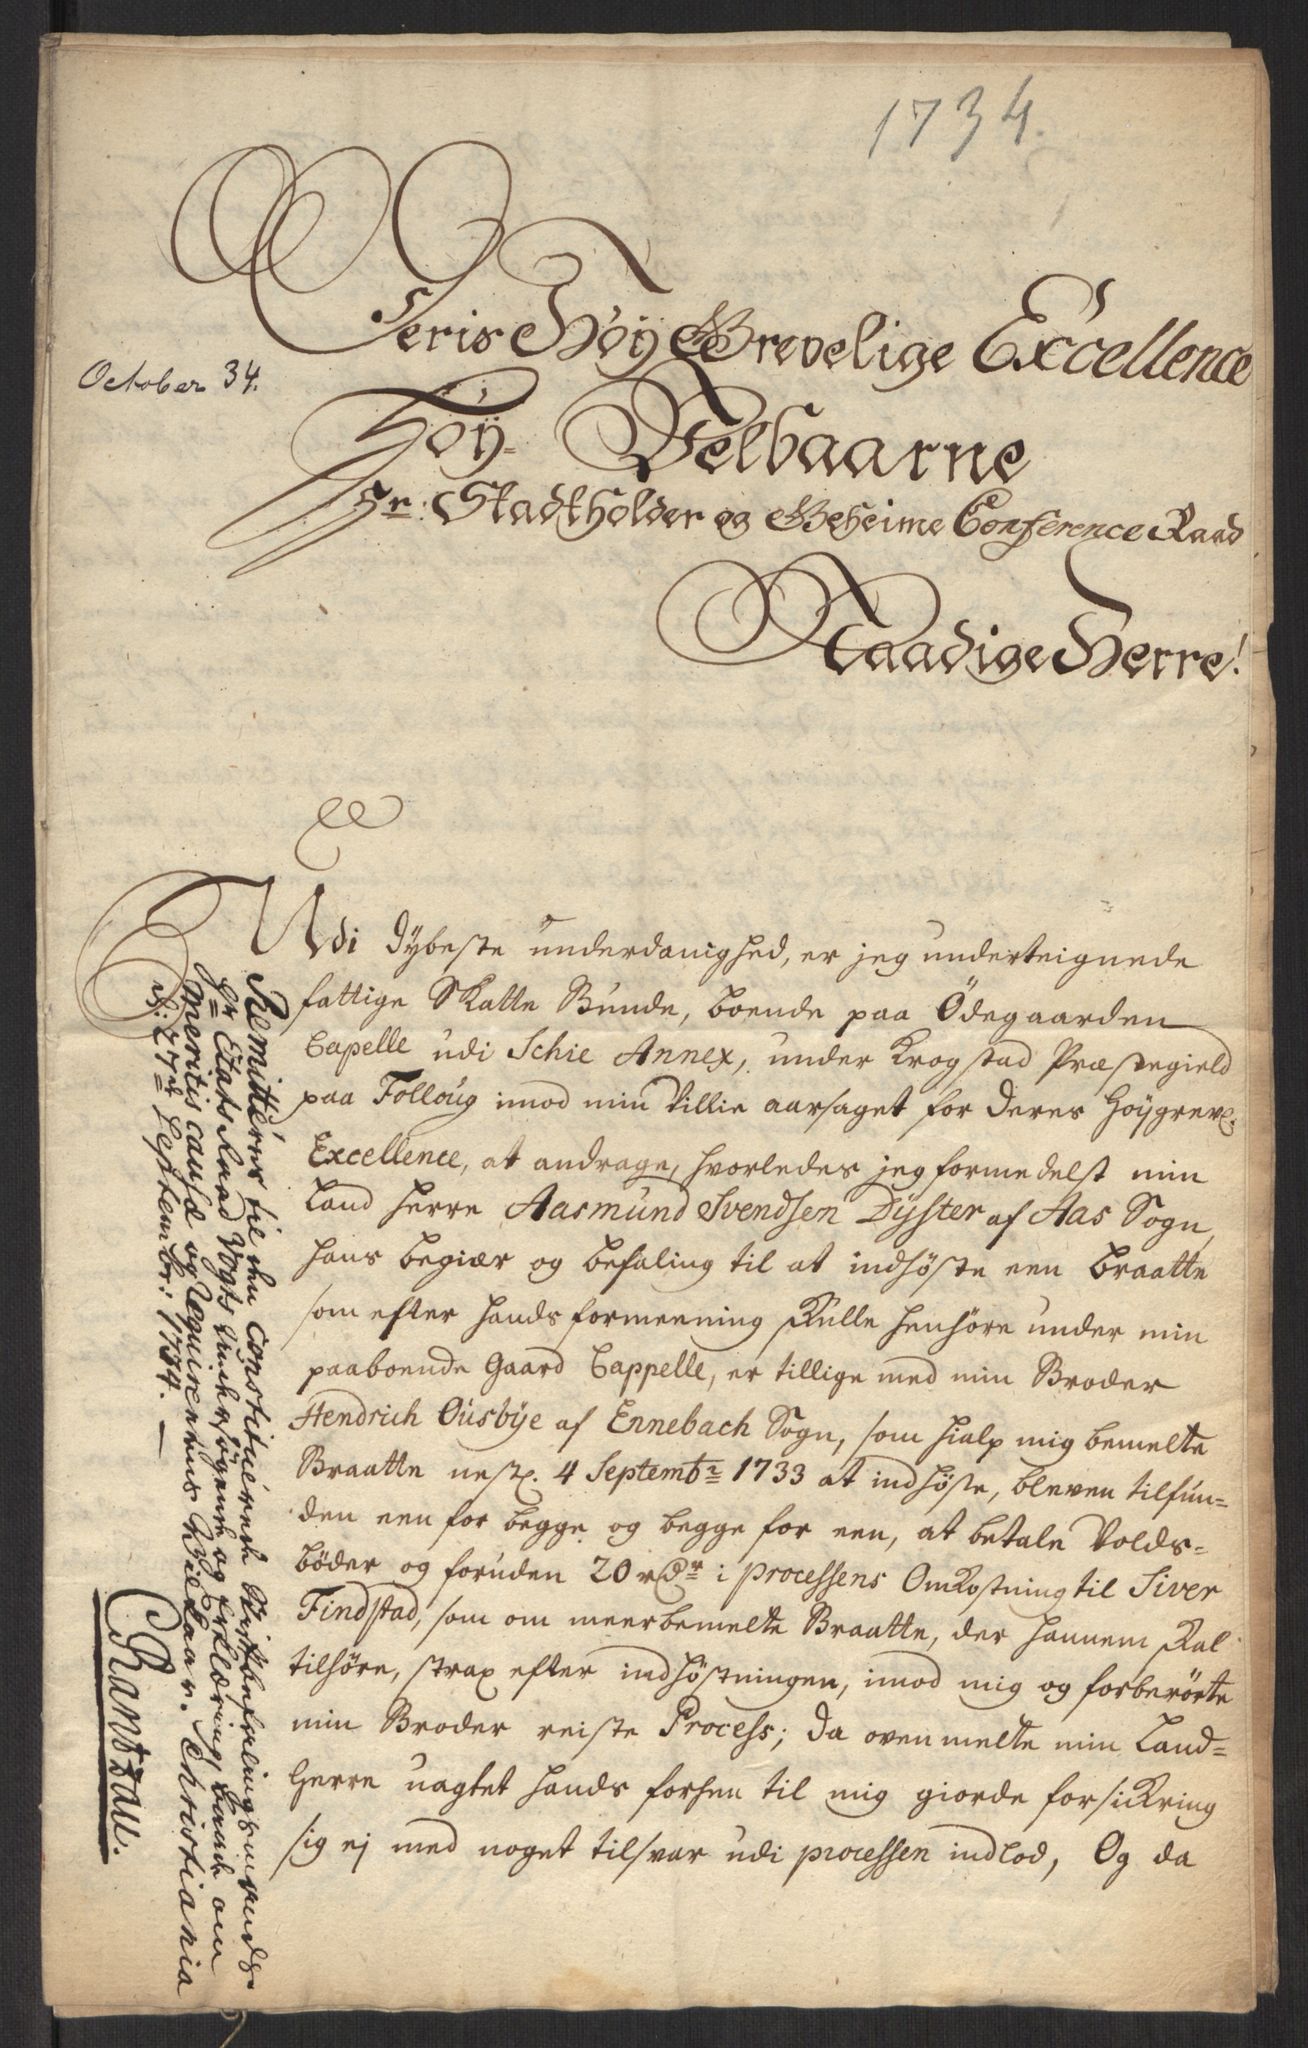 1734.
October 34.
Deris Høy Grevelige Excellence
Høÿ- Velbaarne
Hr: Stadtholder og Geheime Conference Raad
Naadige Herre!
Udi dybeste underdanighed, er jeg underteignede
fattige Skatte Bunde, boende paa Ödegaarden
Capelle udi Schie Annex, under Krogstad Præstegield
paa Folloug imod min villie aarsaget for Deres Høygrevl.
Excellence, at andrage, hvorledes jeg formedelst min
Land Herre Aasmund Svendsen Dÿster af Aas Sogn,
hans begiær og befaling til at indhöste een braatte
som efter hands formeening skulle henhöre under min
paaboende Gaard Cappelle, er tillige med min Broder
Hendrich Ousbÿe af Ennebach Sogn, som hialp mig bemelte
Braatte nestl. 4 Septembr 1733 at indhöste, bleven tilfun-
den een for begge og begge for een, at betale Volds-
böder og foruden 20 rdr i processens Omkostning til Siver
Findstad, som om meerbemelte Braatte, der hannem skal
tilhöre, strax efter indhöstningen, imod mig og forberörte
min Broder reiste Process; da ovenmelte min Land-
Herre uagtet hands forhen til mig giorde forsickring
sig ej med noget tilsvar udi processen indlod, Og da
Remitteres til den Constituerede Stiftbefalingsmands
Hr Etats Raad Vogts undersögning og Erklæring baade om
Meritis causæ og Requirentens Vilkaar. Christiania
d: 27de Septembr: 1734.
Rantzau.